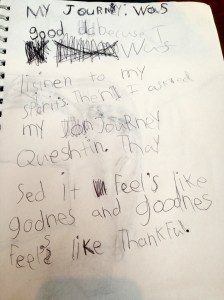 MY JOURNEY. Was
good becausn I
Was
lisinen to my
spirits. Then I
my JOURNEY
Queshtin. Thay
Sed it Feel's like
godnes and goodnes
Feel's like Thankful.